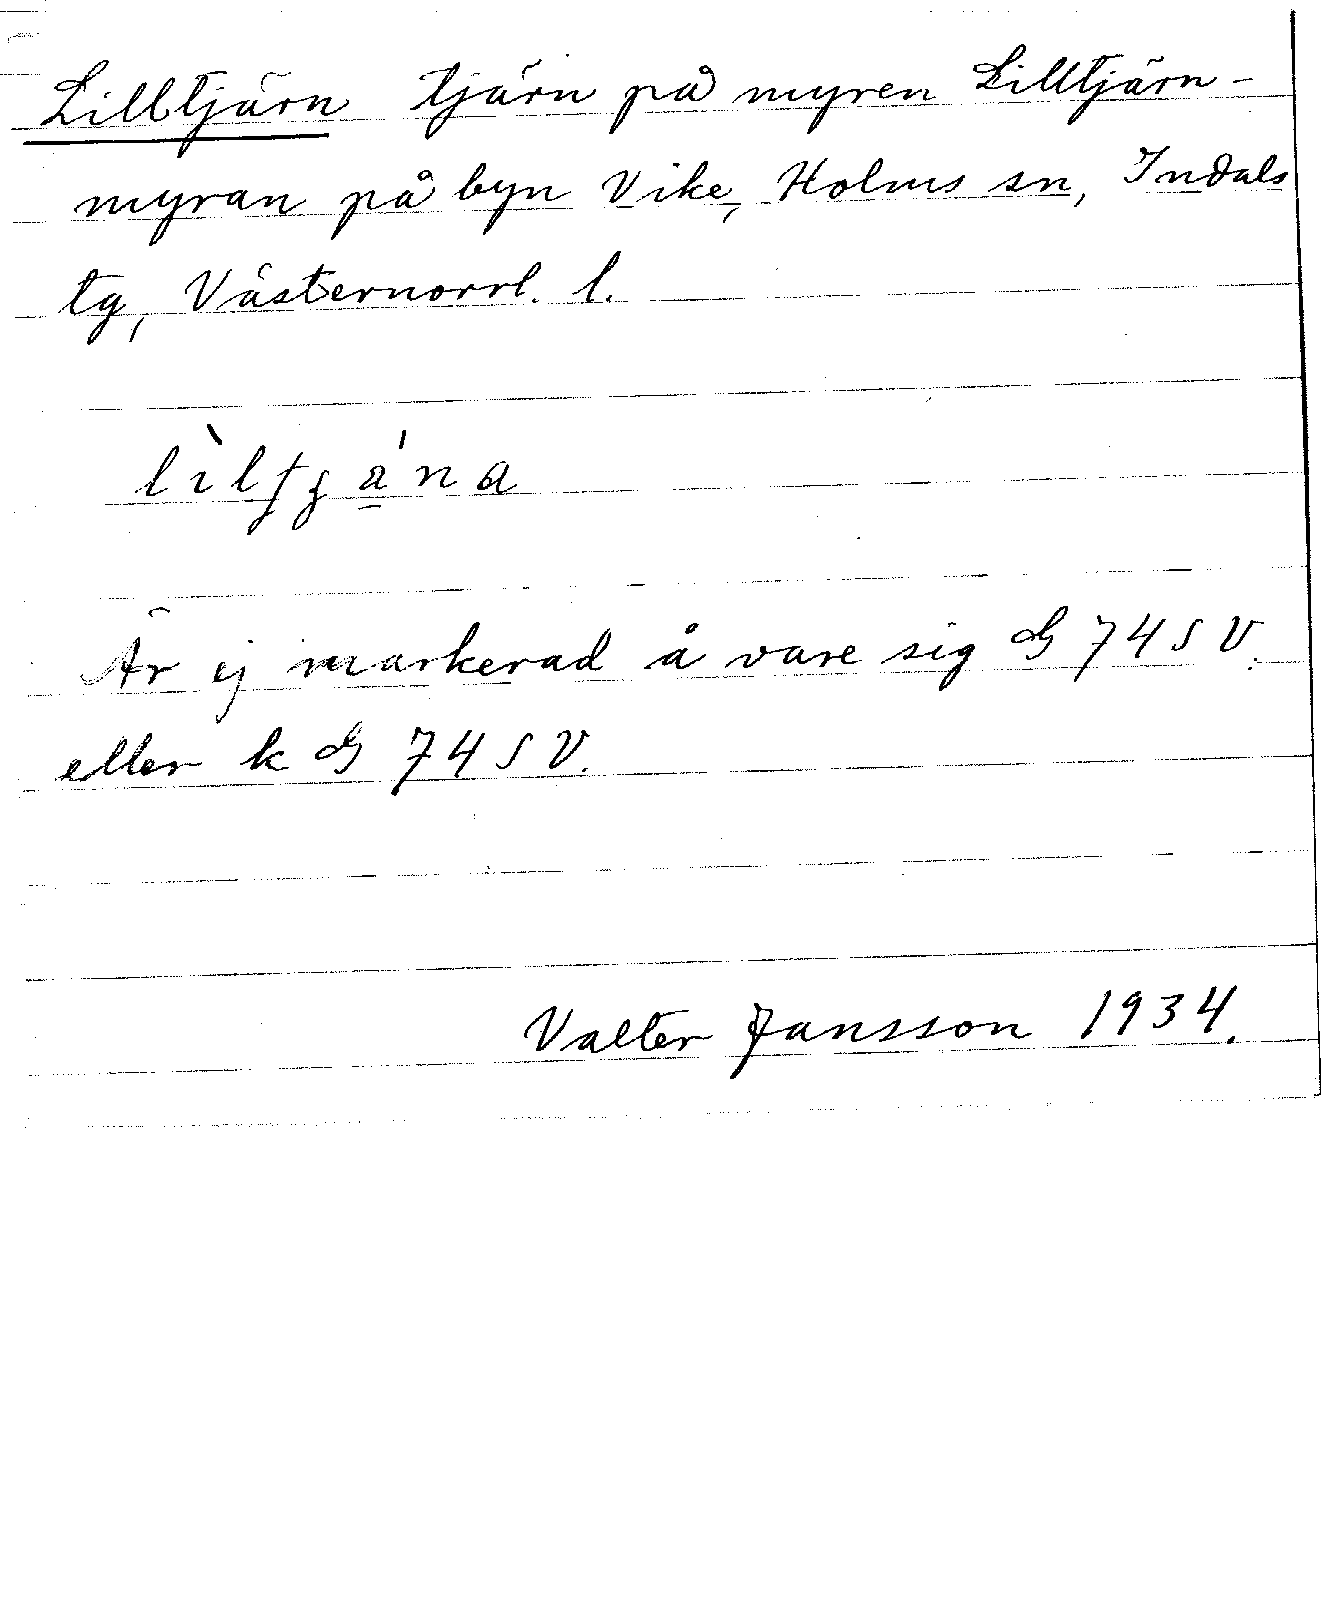 Lilltjärn tjärn på myren Lilltjärn-
myran på byn Vike, Holms sn, Indals
tg, Västernorrl. l.
Är ej markerad å vare sig G 74 SV.
eller k G 74 SV.
Valter Jansson 1934.